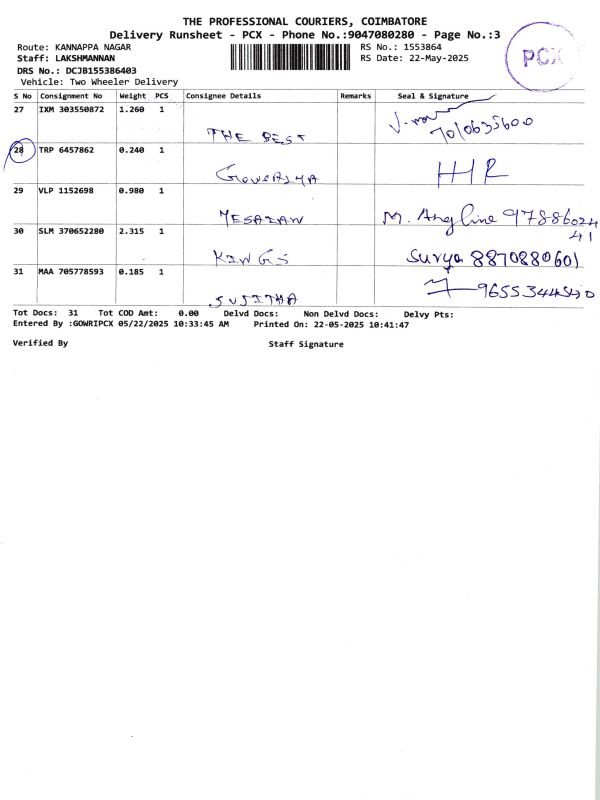 THE PROFESSIONAL COURIERS, COIMBATORE
Delivery Runsheet - PCX - Phone No.:9047080280 - Page No.:3
Route: KANNAPPA NAGAR RS No.: 1553864
Staff: LAKSHMANNAN RS Date: 22-May-2025
DRS No.: DCJB155386403
Vehicle: Two Wheeler Delivery
PCX
S No Consignment No Weight PCS Consignee Details Remarks Seal & Signature
27 IXM 303550872 1.260 1
THE BEST 7010635600
28 TRP 6457862 0.240 1
GOWRIYA HR
29 VLP 1152698 0.980 1
MESAIAN M. Angline 9788602441
30 SLM 370652280 2.315 1
KINGS Surya 8870880601
31 MAA 705778593 0.185 1
SUJITHA 9655344540
Tot Docs: 31 Tot COD Amt: 0.00 Delvd Docs: Non Delvd Docs: Delvy Pts:
Entered By :GOWRIPCX 05/22/2025 10:33:45 AM Printed On: 22-05-2025 10:41:47
Verified By Staff Signature